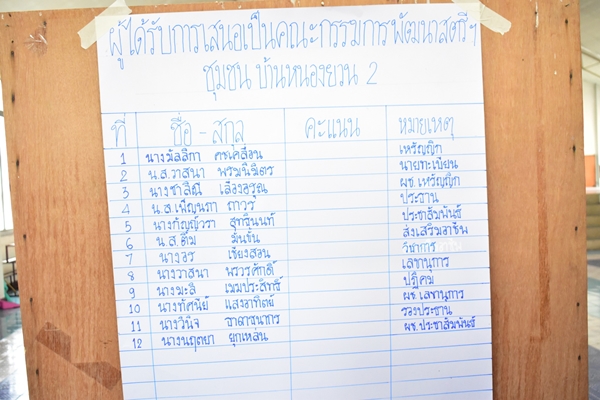 ผู้ได้รับการเสนอเป็นคณะกรรมการพัฒนาสตรีฯ
ชุมชน บ้านหนองยวน 2
ที่ ชื่อ - สกุล คะแนน หมายเหตุ
1 นางมัลลิกา คชเคลื่อน เหรัญญิก
2 น.ส.วาสนา พรมนิมิตร นายทะเบียน
3 นางชาลิณี เลื่องอรุณ ผช.เหรัญญิก
4 น.ส.เพ็ญนภา ถาวร ประธาน
5 นางกัญญ์วรา สุทธินนท์ ประชาสัมพันธ์
6 น.ส.ติ๋ม มั่นชื่น ส่งเสริมอาชีพ
7 นางอร เชียงสอน วิชาการ
8 นางวาสนา พรวรศักดิ์ เลขานุการ
9 นางมะลิ เขมประสิทธิ์ ปฏิคม
10 นางทัศนีย์ แสงอาทิตย์ ผช.เลขานุการ
11 นางวินิจ ธาดาธนากร รองประธาน
12 นางนฤตยา ยุกเหล่น ผช.ประชาสัมพันธ์